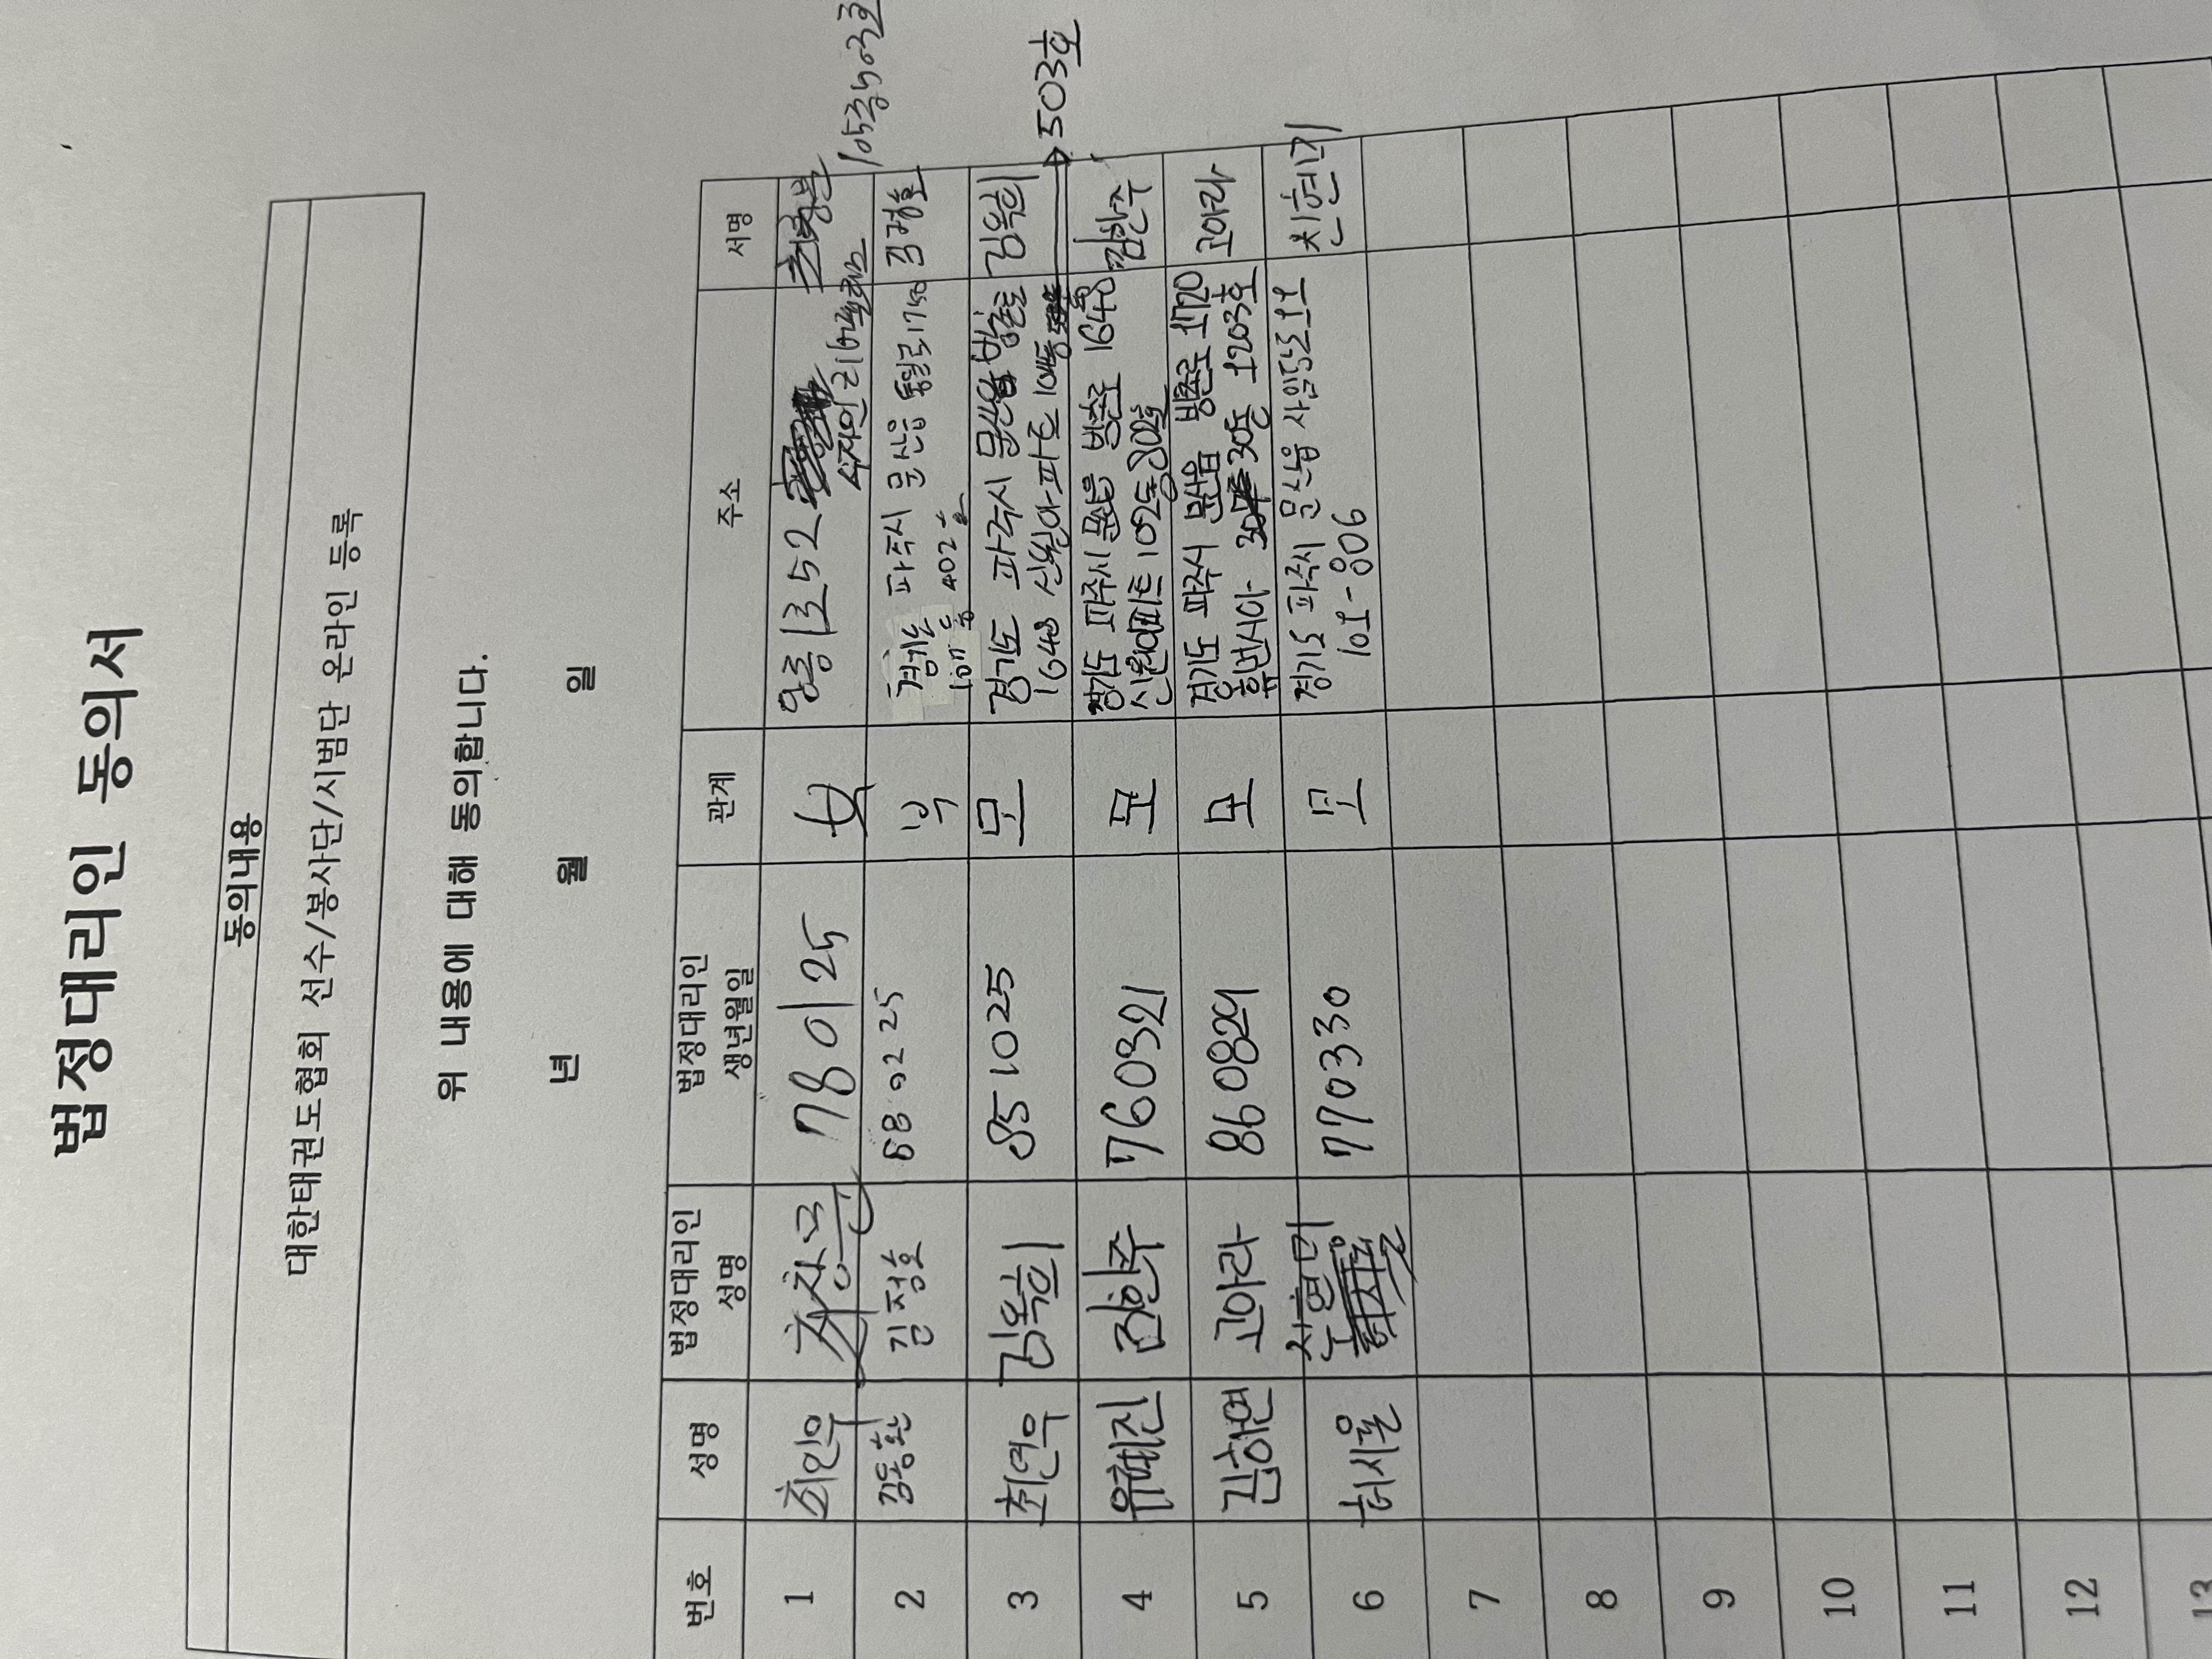 법정대리인 동의서
동의내용
대한태권도협회 선수/봉사단/시범단 온라인 등록
위 내용에 대해 동의합니다.
년 월 일
번호 성명 법정대리인 성명 법정대리인 생년월일 관계 주소 서명
1 최인우 780125 父 1352
105동 503호
2 김동환 김정호 680225 부 경기도 파주시 문산읍 통일로 1750 김정호
107동 402호
3 최연우 김옥희 851025 모 경기도 파주시 문산읍 방촌로 김옥희
1648 신원아파트 104동 → 503호
4 유혜진 김한주 760321 모 경기도 파주시 문산읍 방촌로 1648 김한주
신원아파트 102동 802호
5 김하연 고아라 860829 모 경기도 파주시 문산읍 방촌로 1720 고아라
휴먼시아 30동 1203호
6 허시율 770330 모 경기도 파주시 문산읍 사임당로 11
101-806
7
8
9
10
11
12
13